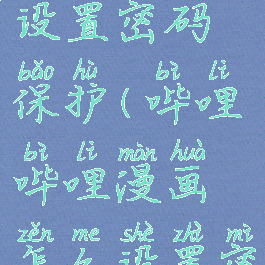 设置密码
bǎo hù bì lì
保护(哔哩
bì lì màn huà
哔哩漫画
zěn me shè zhì mì
怎么设置密